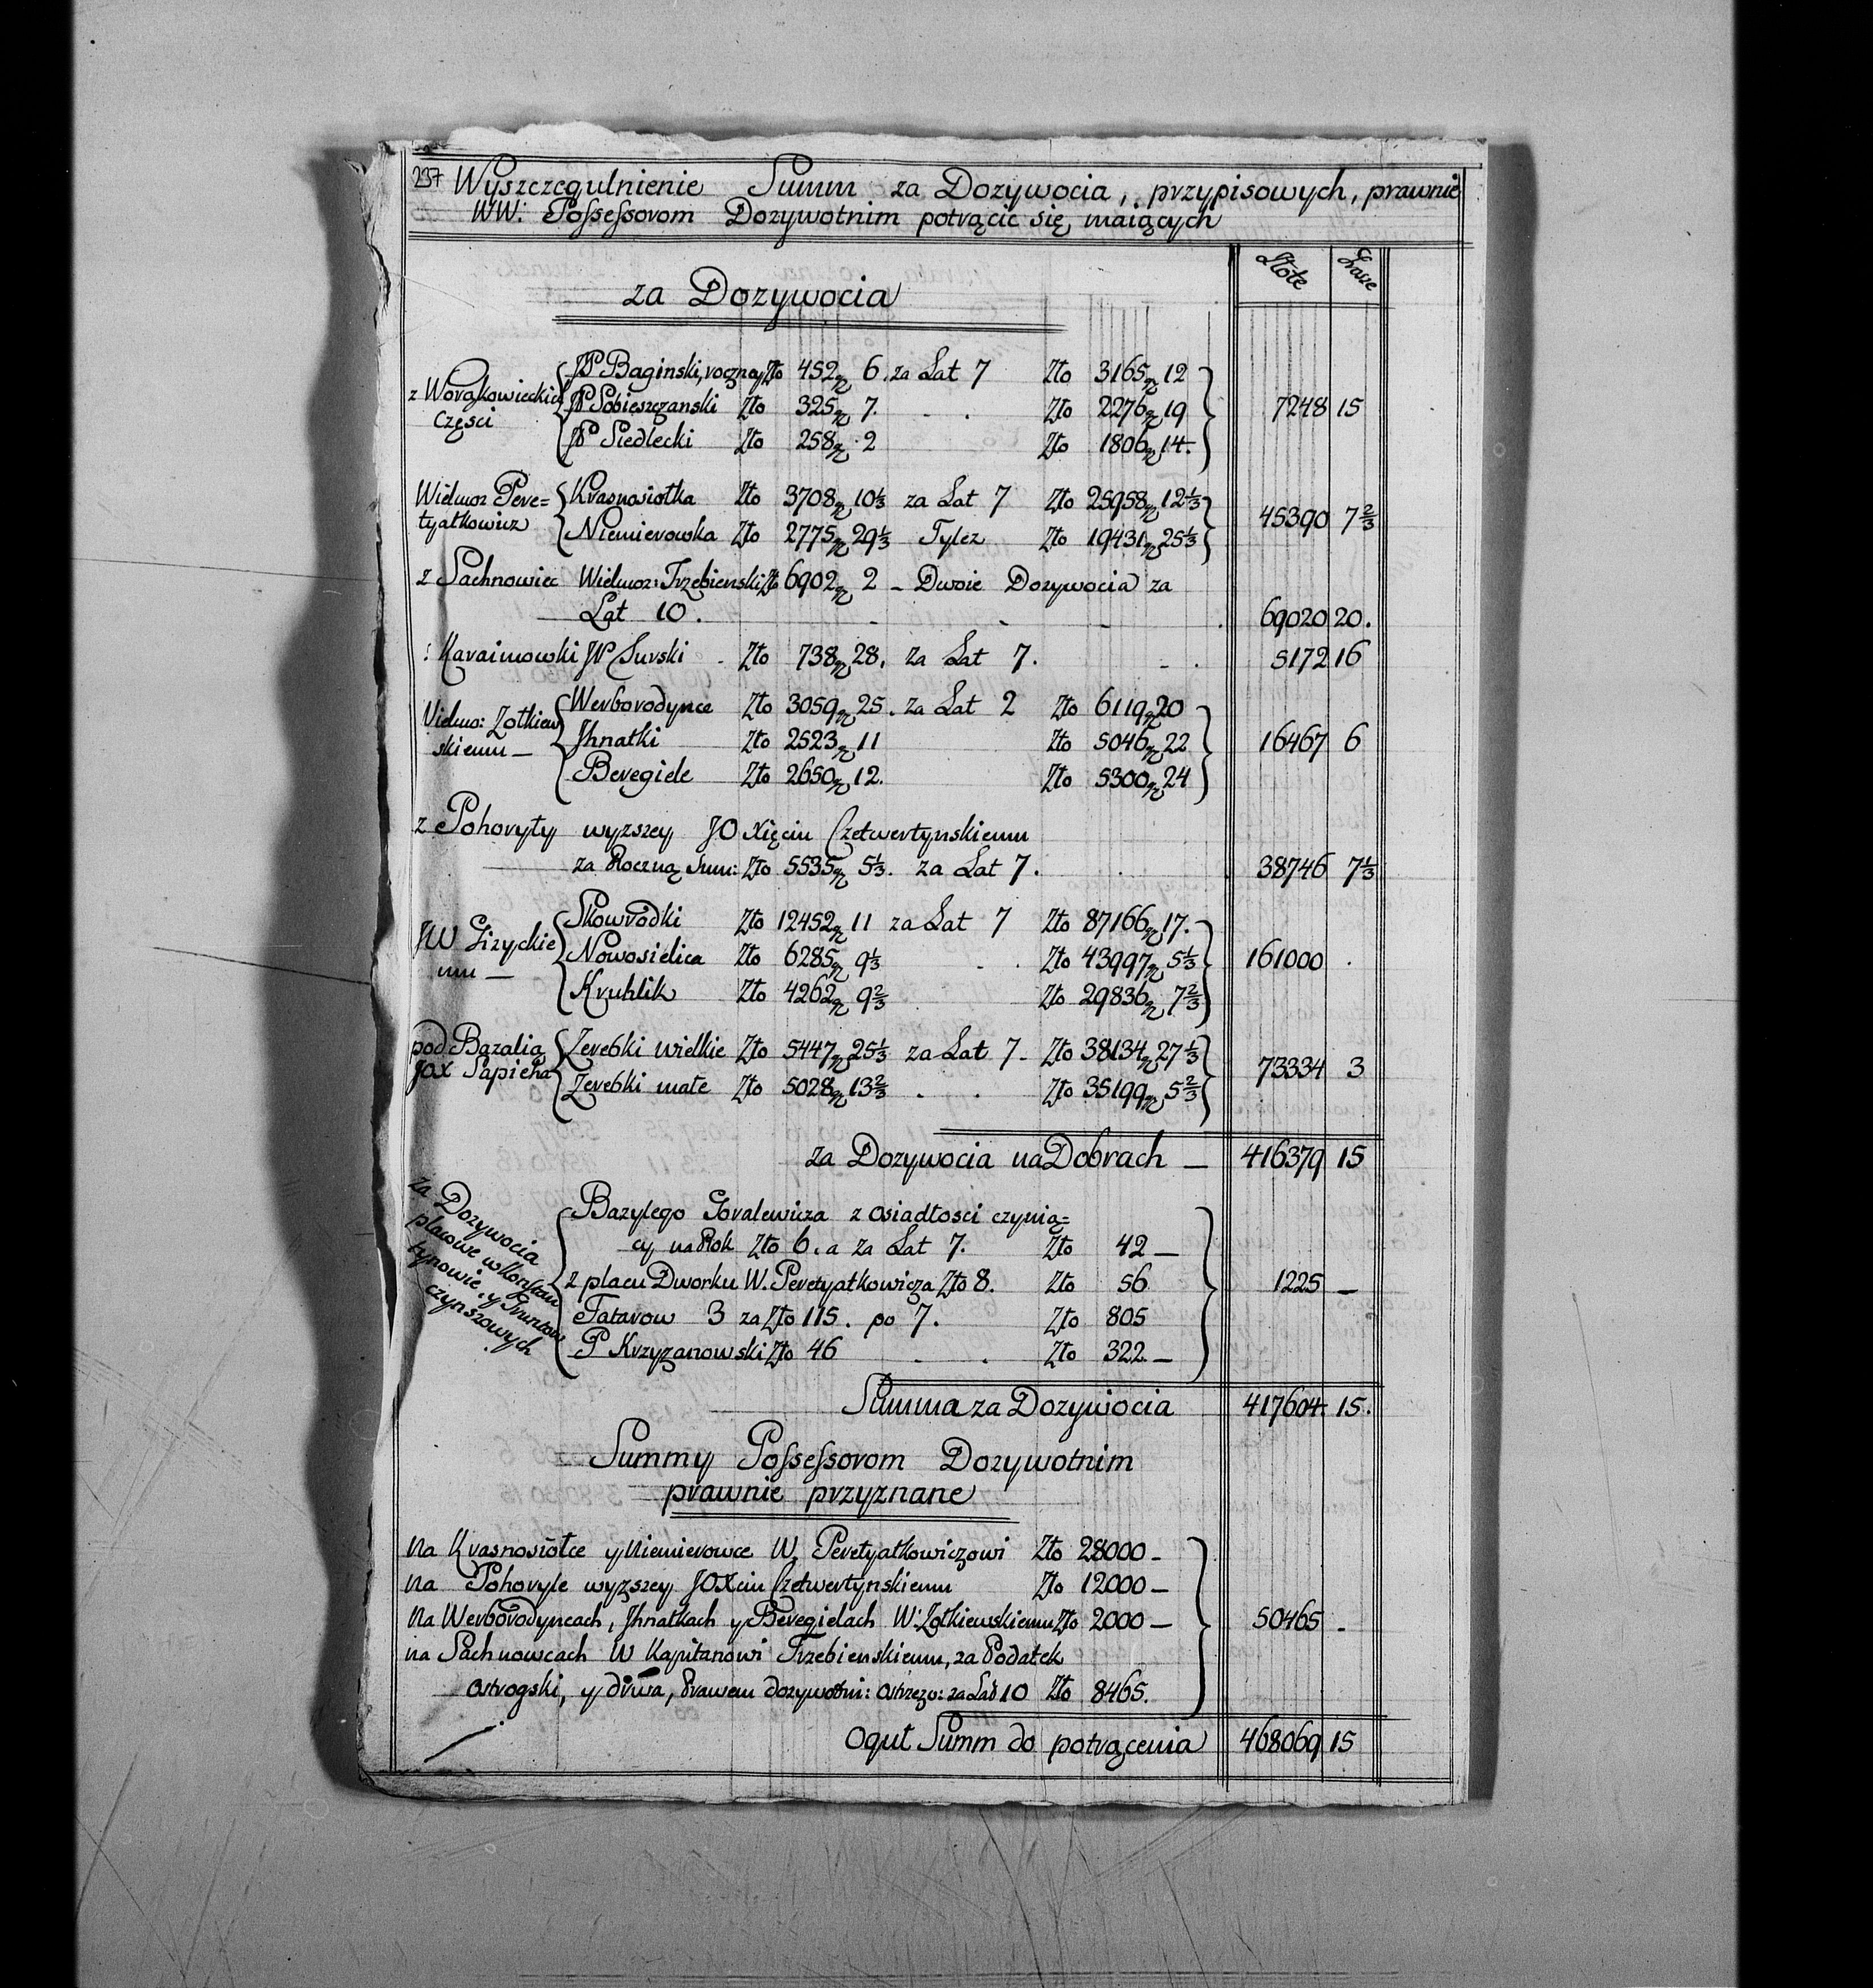 237 Wyszczegulnienie Summ za Dozywocia, przypisowych, prawnie
WW: Possessorom Dozywotnim potrącic się maiących
Złote Grosze
za Dozywocia
z Worąkowieckich części
JP Baginski, roczney Zło 452 gr 6. za Lat 7 Zło 3165 gr 12
JP Sobieszczanski Zło 325 gr 7. Zło 2276 gr 19 7248 15
JP Siedlecki Zło 258 gr 2 Zło 1806 gr 14.
Wielmoz Pere=
tyatkowicz
Krasnosiołka Zło 3708 gr 10⅓ za Lat 7 Zło 25958 gr 12⅓
Niemierowka Zło 2775 gr 29⅓ Tylez Zło 19431 gr 25⅓ 45390 7⅔
z Sachnowiec Wielmoz: Trzebienski Zło 6902 gr 2 – Dwoie Dozywocia za
Lat 10. 69020 20.
: Karaimowki JP Surski - Zło 738 gr 28, za Lat 7. 5172 16
Wielmo: Zołkiew
skiemu —
Werborodynce Zło 3059 gr 25. za Lat 2 Zło 6119 gr 20
Jhnatki Zło 2523 gr 11 Zło 5046 gr 22 16467 6
Beregiele Zło 2650 gr 12. Zło 5300 gr 24
z Pohoryły wyzszey JO Xięciu Czetwertynskiemu
za Roczną Sum: Zło 5535 gr 5⅓. za Lat 7. 38746 7⅓
JW Gizyckie
mu —
Skowrodki Zło 12452 gr 11 za Lat 7 Zło 87166 gr 17.
Nowosielica Zło 6285 gr 9⅓ Zło 43997 gr 5⅓ 161000 .
Kruhlik Zło 4262 gr 9⅔ Zło 29836 gr 7⅔
pod Bazalią
JOX Sapieha
Zerebki wielkie Zło 5447 gr 25⅓ za Lat 7 - Zło 38134 gr 27⅓
Zerebki małe Zło 5028 gr 13⅔ Zło 35199 gr 5⅔ 73334 3
za Dozywocia na Dobrach — 416379 15
za Dozywocia
placowe w Konstan
tynowie, y Gruntow
czynszowych
Bazylego Goralewicza z osiadłosci czynią=
cy na Rok Zło 6. a za Lat 7. Zło 42 —
z placu Dworku W. Peretyatkowicza Zło 8. Zło 56 1225 —
Tatarow 3 za Zło 115. po 7. Zło 805
P Krzyzanowski Zło 46 Zło 322 —
Summa za Dozywocia 417604. 15.
Summy Possessorom Dozywotnim
prawnie przyznane
na Krasnosiołce y Niemierowce W. Peretyatkowiczowi Zło 28000 -
na Pohoryle wyzszey JOXciu Czetwertynskiemu Zło 12000 —
na Werborodyncach, Jhnatkach y Beregielach W: Zołkiewskiemu Zło 2000 — 50465 .
na Sachnowcach W Kapitanowi Trzebienskiemu, za Podatek
ostrogski, y drwa, Prawem dozywotni: ostrzezo: za Lat 10 Zło 8465.
Oguł Summ do potrącenia 468069 15